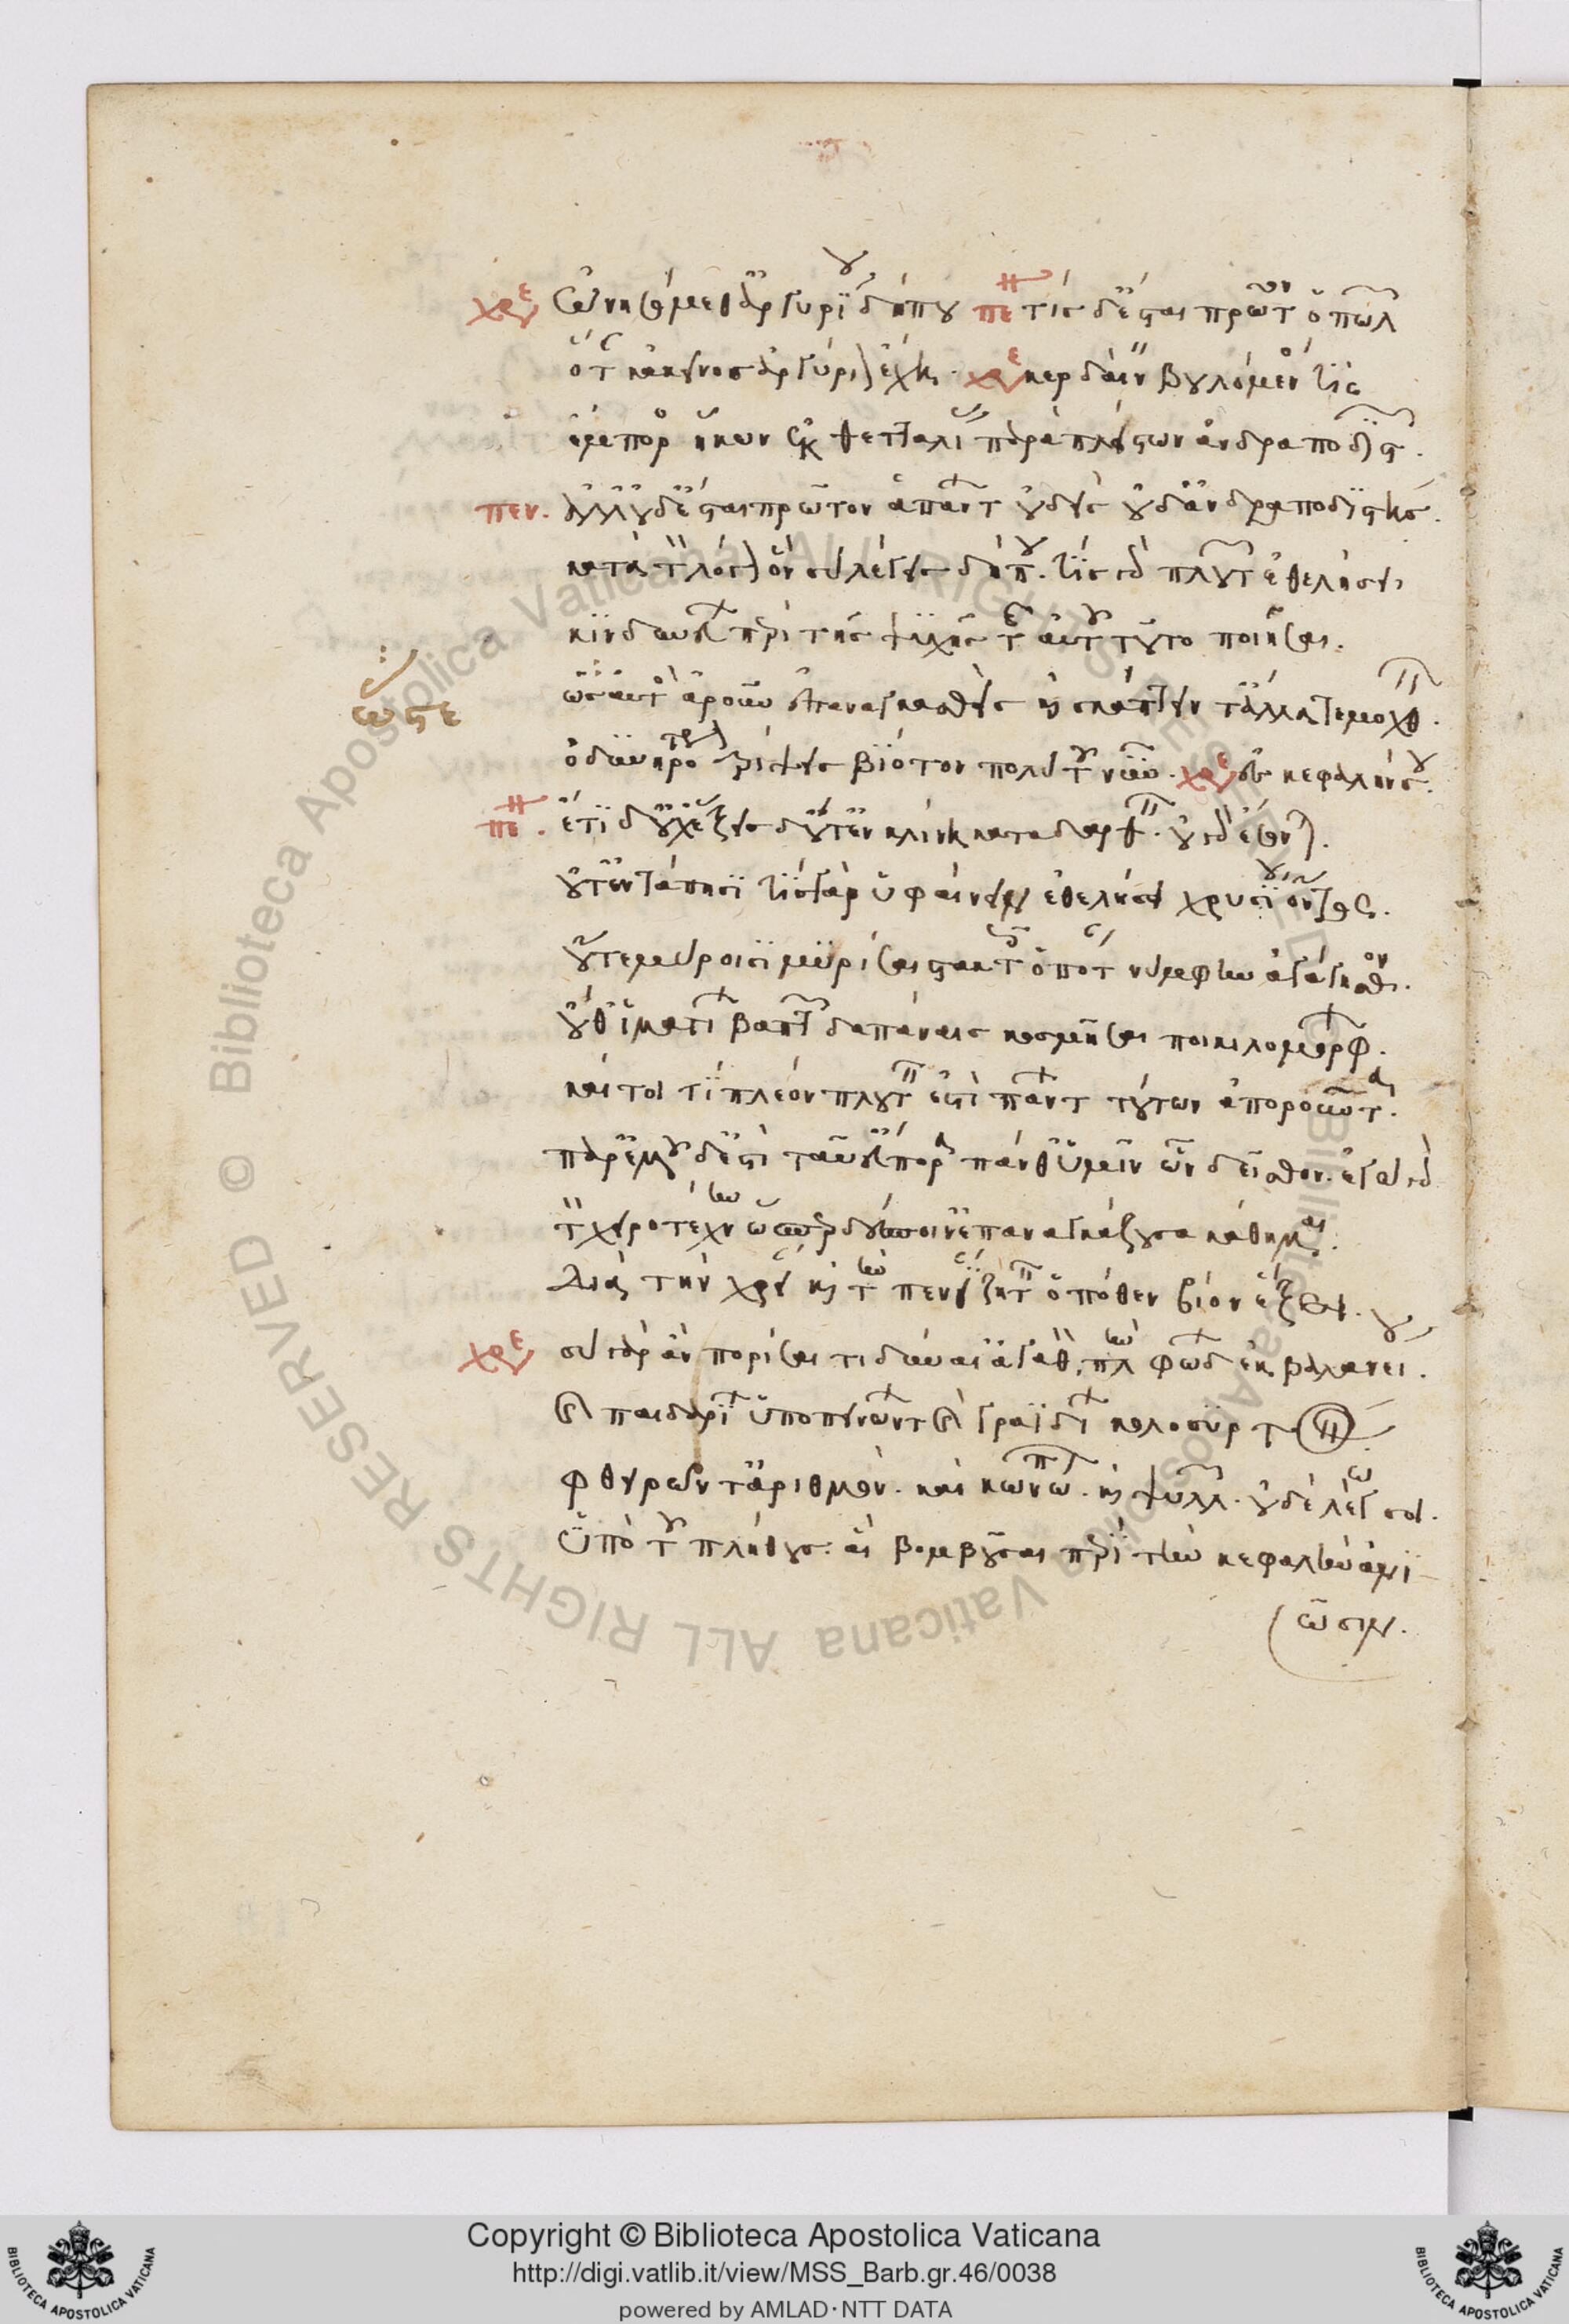 χρε ὠνησόμεθ' ἀργυρίου δήπου πε τίς δ' ἔσται πρῶτον ὁ πωλῶν
ὅταν κἀκεῖνος ἀργύριον ἔχῃ. χρε κερδαίνειν βουλόμενος τὶς
ἔμπορος ἥκων ἐκ θετταλίας παρὰ πλείστων ἀνδραποδιστῶν.
πεν. ἀλλ' οὐδ' ἔσται πρῶτον ἁπάντων οὐδεὶς οὐδ' ἀνδραποδιστής.
κατὰ τὸν λόγον ὃν σὺ λέγεις δήπου. τίς γὰρ πλουτῶν ἐθελήσει
κινδυνεύων περὶ τῆς ψυχῆς τῆς αὑτοῦ τοῦτο ποιῆσαι.
ὥστε
ὥστ' αὐτὸς ἀροῦν ἐπαναγκασθεὶς καὶ σκάπτειν τἄλλα τε μοχθεῖν.
ὀδυνηρότερον τρίψεις βίοτον πολὺ τοῦ νῦν. χρε ἐς κεφαλήν σου.
πε. ἔτι δ' οὐχ ἕξεις οὔτ' ἐν κλίνῃ καταδαρθεῖν. οὐ γὰρ ἔσονται.
οὔτ' ἐν τάπησι τίς γὰρ ὑφαίνειν ἐθελήσει χρυσίου ὄντος.
οὔτε μύροισι μυρίσαι στακτοῖς ὁπόταν νύμφην ἀγάγησθον.
οὔθ' ἱματίων βαπτῶν δαπάναις κοσμῆσαι ποικιλομόρφων.
καίτοι τί πλέον πλουτεῖν ἐστὶ πάντων τούτων ἀποροῦντα.
παρ' ἐμοῦ δ' ἐστὶ ταῦτ' εὔπορα πάνθ' ὑμῖν ὧν δεῖσθον. ἐγὼ γὰρ
τὸν χειροτέχνην ὥσπερ δέσποιν' ἐπαναγκάζουσα κάθημαι.
διὰ τὴν χρείαν καὶ τὴν πενίαν ζητεῖν ὁπόθεν βίον ἕξει.
χρε σὺ γὰρ ἂν πορίσαι τι δύναι' ἀγαθὸν, πλὴν φώδων ἐκ βαλανείου.
καὶ παιδαρίων ὑποπεινώντων καὶ γραϊδίων κολοσυρτόν.
φθειρῶν τ' ἀριθμὸν. καὶ κωνώπων. καὶ ψυλλῶν. οὐδὲ λέγω σοι.
ὑπὸ τοῦ πλήθους. αἳ βομβοῦσαι περὶ τὴν κεφαλὴν ἀνι
ῶσιν.
Copyright © Biblioteca Apostolica Vaticana
http://digi.vatlib.it/view/MSS_Barb.gr.46/0038
powered by AMLAD·NTT DATA